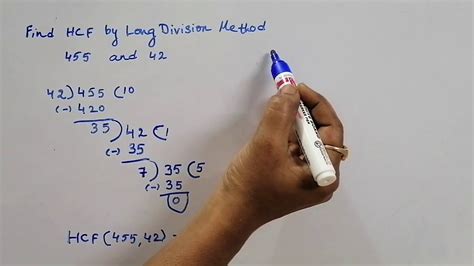 Find HCF by Long Division Method
455 and 42
42) 455 (10
(-) 420
35) 42 (1
(-) 35
7) 35 (5
(-) 35
0
HCF (455, 42) -